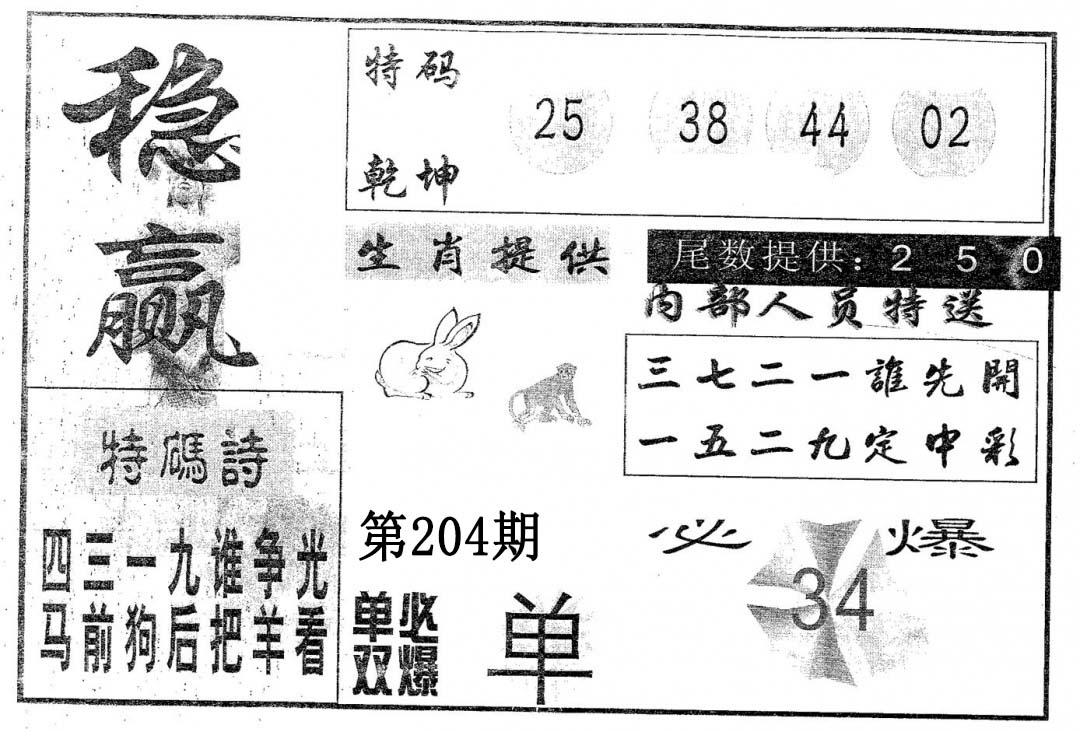 稳赢
特码
乾坤
25 38 44 02
生肖提供
尾数提供: 2 5 0
内部人员特送
三七二一誰先開
一五二九定中彩
特碼詩
四三一九谁争光
马前狗后把羊看
第204期
单双
必爆
单
必爆
34